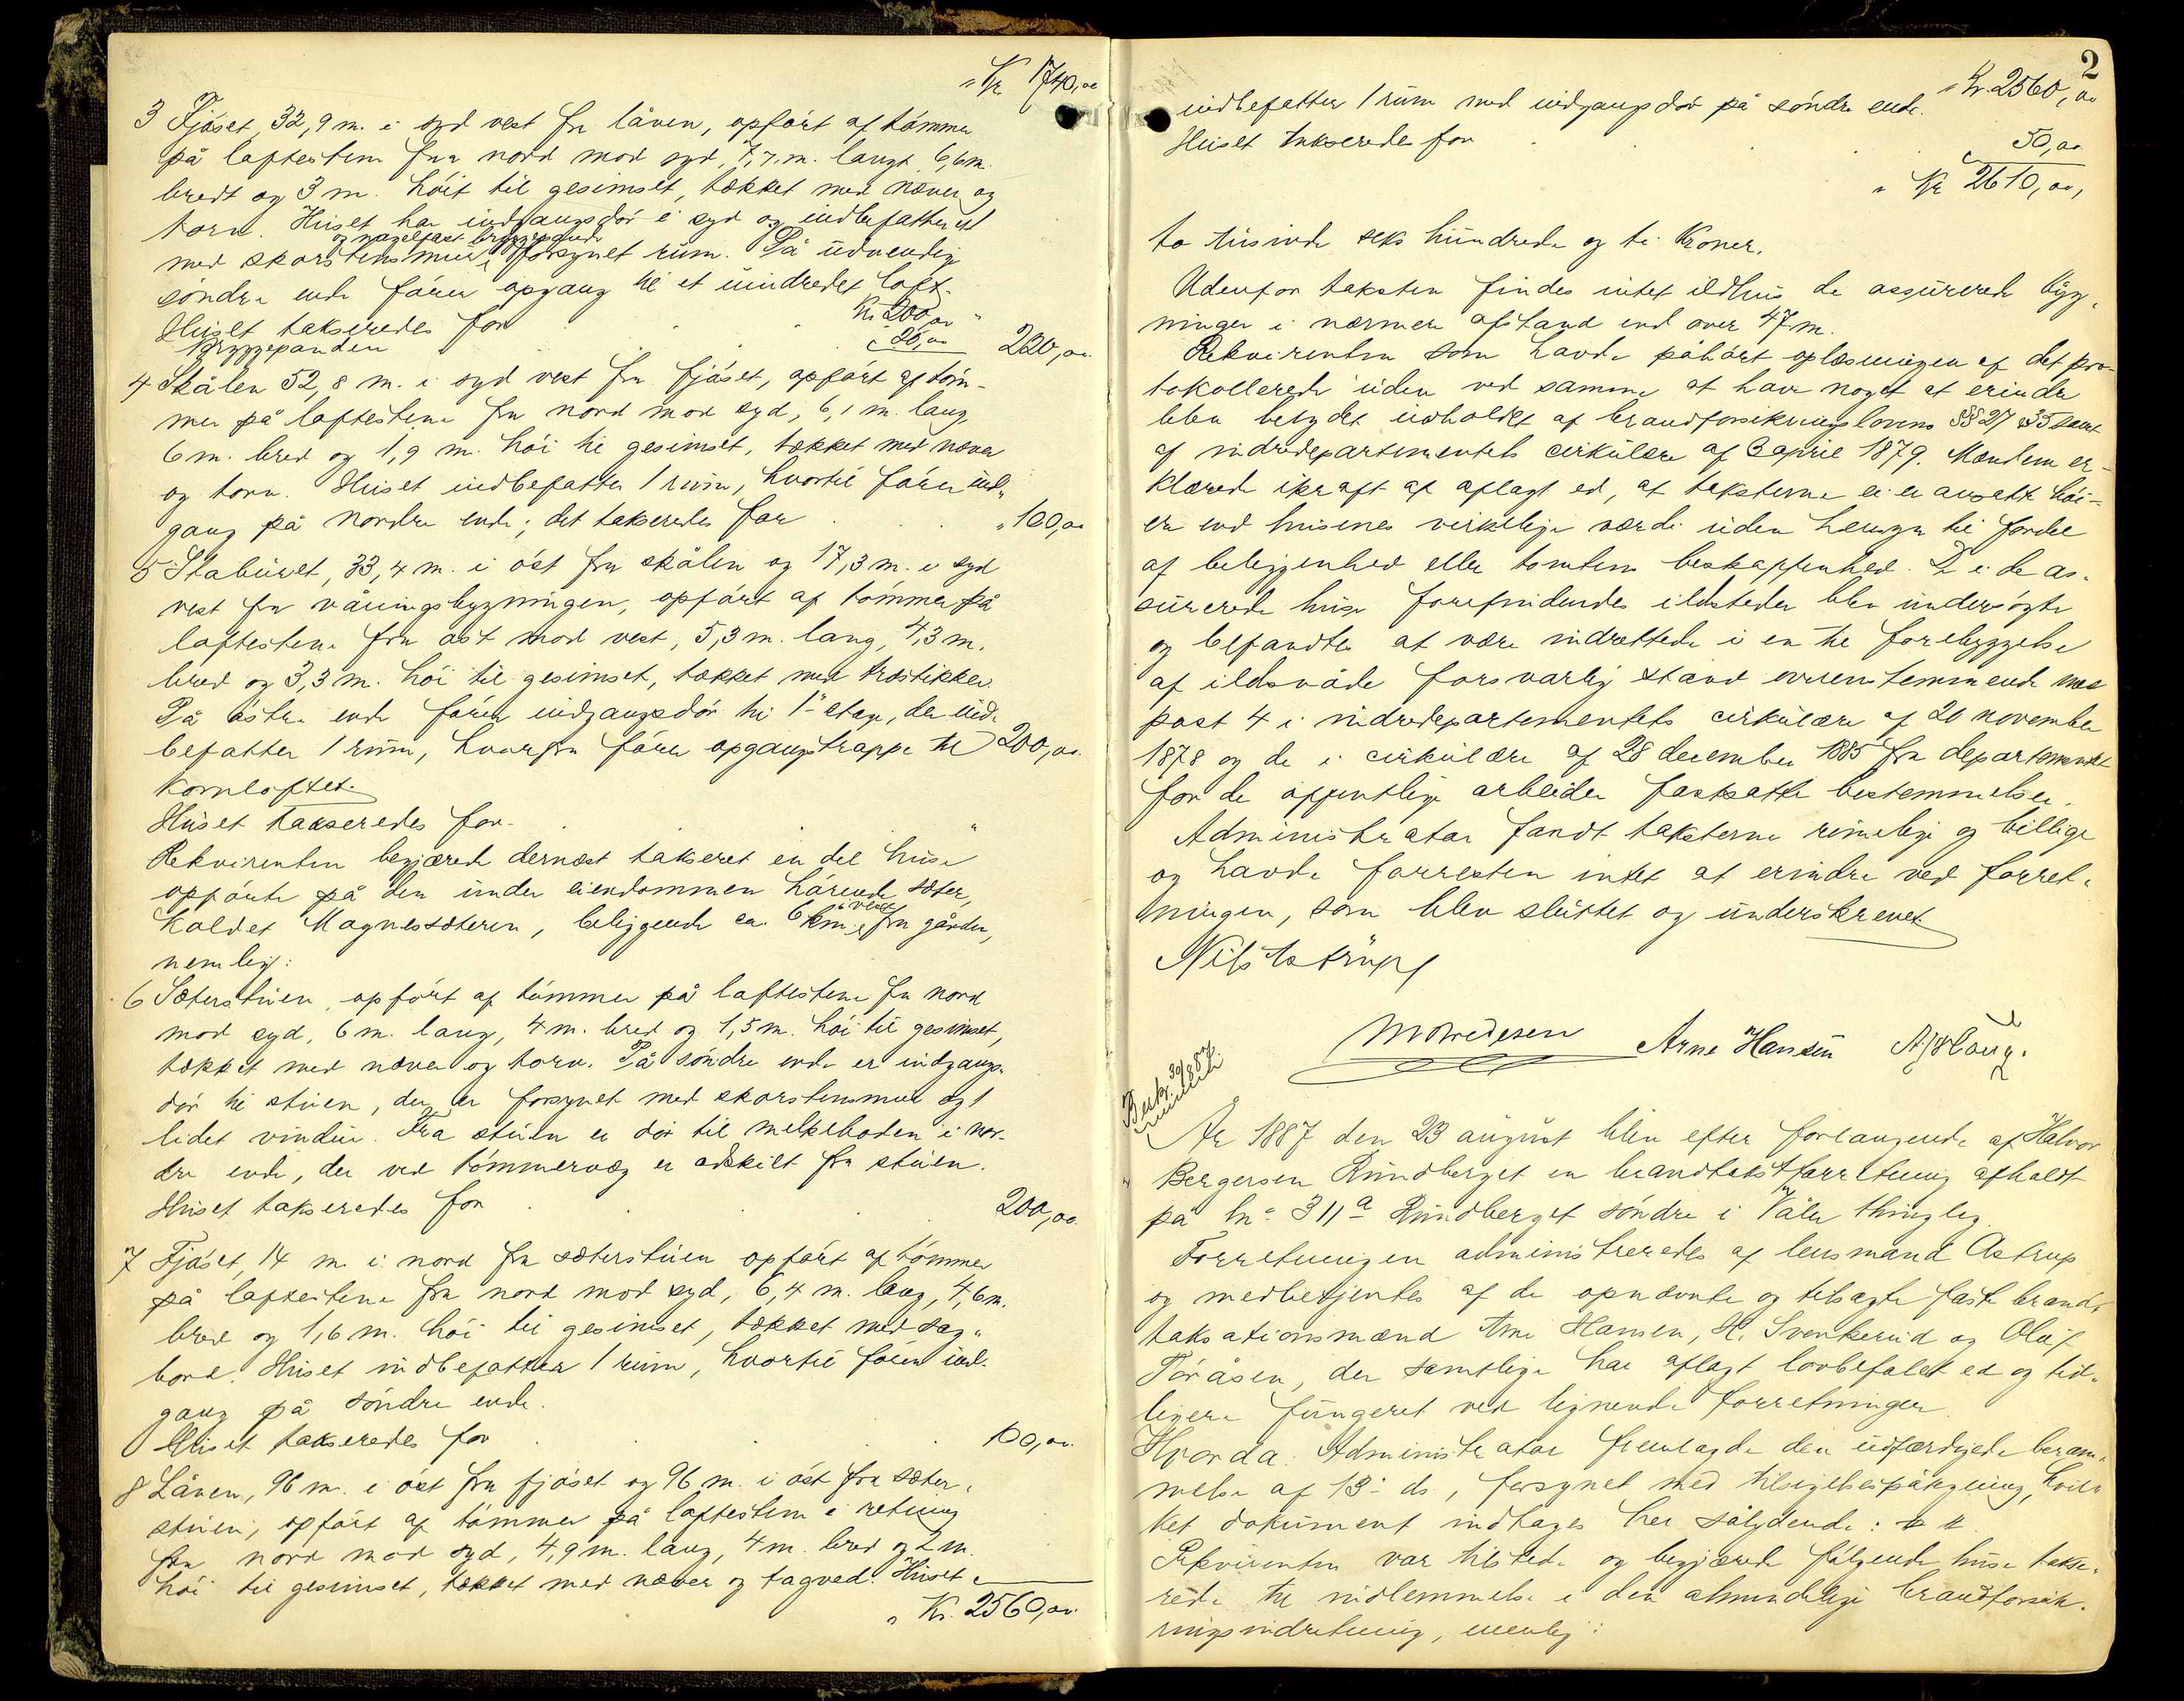 " Kr 1740,00
3 Fjöset, 32,9 m. i syd vest fra låven, opført af tömmer
på laftestene fra nord mod syd, 7,7 m. langt, 6,6 m.
bredt og 3 m. höit til gesimset, tækket med næver og
torv. Huset har indgangsdör i syd og indbefatter et
og nagelfast bryggepande
med skorstensmur forsynet rum. På udvendig
söndre ende förer opgang til et uindredet loft.
Huset takseredes for . . Kr 200,00 "
Bryggepanden . . " 20,00 220,00
4 Skålen 52,8 m. i syd vest fra fjöset, opfört af töm-
mer på laftestene fra nord mod syd, 6,1 m. lang,
6 m. bred og 1,9 m. höi til gesimset, tækket med næver
og torv. Huset indbefatter 1 rum, hvortil förer ind-
gang på nordre ende; det takseredes for . . " 100,00
5 Stabüret, 33,4 m. i öst fra skålen og 17,3 m. i syd
vest fra våningsbygningen, opfört af tömmer på
laftestene fra öst mod vest, 5,3 m. lang, 4,3 m.
bred og 3,3 m. höi til gesimset, tækket med træstikker.
På östre ende förer indgangsdör til 1ste etage, der ind-
befatter 1 rum, hvorfra förer opgangstrappe til 200,00
kornloftet.
Huset takseredes for . . "
Rekvirenten begjærede dernæst takseret en del huse
opförte på den under eiendommen hörende sæter,
i vest
kaldet Magnessæteren, beliggende ca. 6 km fra gården,
nemlig:
6 Sæterstuen, opfört af tömmer på laftestene fra nord
mod syd, 6 m. lang, 4 m. bred og 1,5 m. höi til gesimset,
tækket med næver og torv. På söndre ende er indgangs-
dör til stuen, der er forsynet med skorstensmur og 1
lidet vindu. Fra stuen er dör til melkeboden i nor-
dre ende, der ved tömmervæg er adskilt fra stuen.
Huset takseredes for . . . 200,00.
7 Fjöset, 14 m. i nord fra sæterstuen opfört af tömmer
på laftestene fra nord mod syd, 6,4 m. lang, 4,6 m.
bred og 1,6 m. höi til gesimset, tækket med sag-
bord. Huset indbefatter 1 rum, hvortil förer ind-
gang på söndre ende.
Huset takseredes for . . . 100,00.
8 Låven, 96 m. i öst fra fjöset og 96 m. i öst fra sæter-
stuen, opfört af tömmer på laftestene i retning
fra nord mod syd, 4,9 m. lang, 4 m. bred og 2 m.
höi til gesimset, tækket med næver og tagved. Huset
" Kr. 2560,00.
2
" Kr. 2560,00
indbefatter 1 rum med indgangsdör på söndre ende.
Huset takseredes for . . . " 50,00
" Kr 2610,00,
to tusinde seks hundrede og ti Kroner.
Udenfor taksten findes intet ildhus de assurerede byg-
ninger i nærmere afstand end over 47 m.
Rekvirenten som havde påhört oplæsningen af det pro-
tokollerede uden ved samme at have noget at erindre
blev betydet indholdet af brandforsikringslovens §§ 27 & 35 samt
af indredepartementets cirkulære af 3 april 1879. Mændene er-
klærede i kraft af aflagt ed, at taksterne ei er ansatte höi-
ere end husenes virkelige værdi uden hensyn til fordel
af beliggenhed eller tomtens beskaffenhed. De i de as-
surerede huse forefindendes ildsteder blev undersögte
og befandtes at være indrettede i en til forebyggelse
af ildsvåde forsvarlig stand overensstemmende med
post 4 i indredepartementets cirkulære af 20 november
1878 og de i cirkulære af 28 december 1885 fra departementet
for de offentlige arbeider fastsatte bestemmelser.
Administrator fandt taksterne rimelige og billige
og havde forresten intet at erindre ved forret-
ningen, som blev sluttet og underskrevet.
Nils Astrup
M Arvedesen Arne Hansen A. Haug.
Besk. 30/8 87
År 1887 den 23 august blev efter forlangende af Halvor
Bergersen Rundberget en brandtakstforretning afholdt
på ln: 311a Rundberget söndre i Våler thinglag.
Forretningen administreredes af lensmand Astrup
og medbetjentes af de opnævnte og tilsagte faste brand-
taksationsmænd Arne Hansen, H. Svenkerud og Oluf
Töråsen, der samtlige har aflagt lovbefalet ed og tid-
ligere fungeret ved lignende forretninger.
Hvorda: Administrator fremlagde den udfærdigede beram-
melse af 13. ds., forsynet med tilsigelsespåtegning, hvil-
ket dokument indtages her sålydende:
Rekvirenten var tilstede og begjærede fölgende huse takse-
rede til indlemmelse i den almindelige brandforsik-
ringsindretning, nemlig: